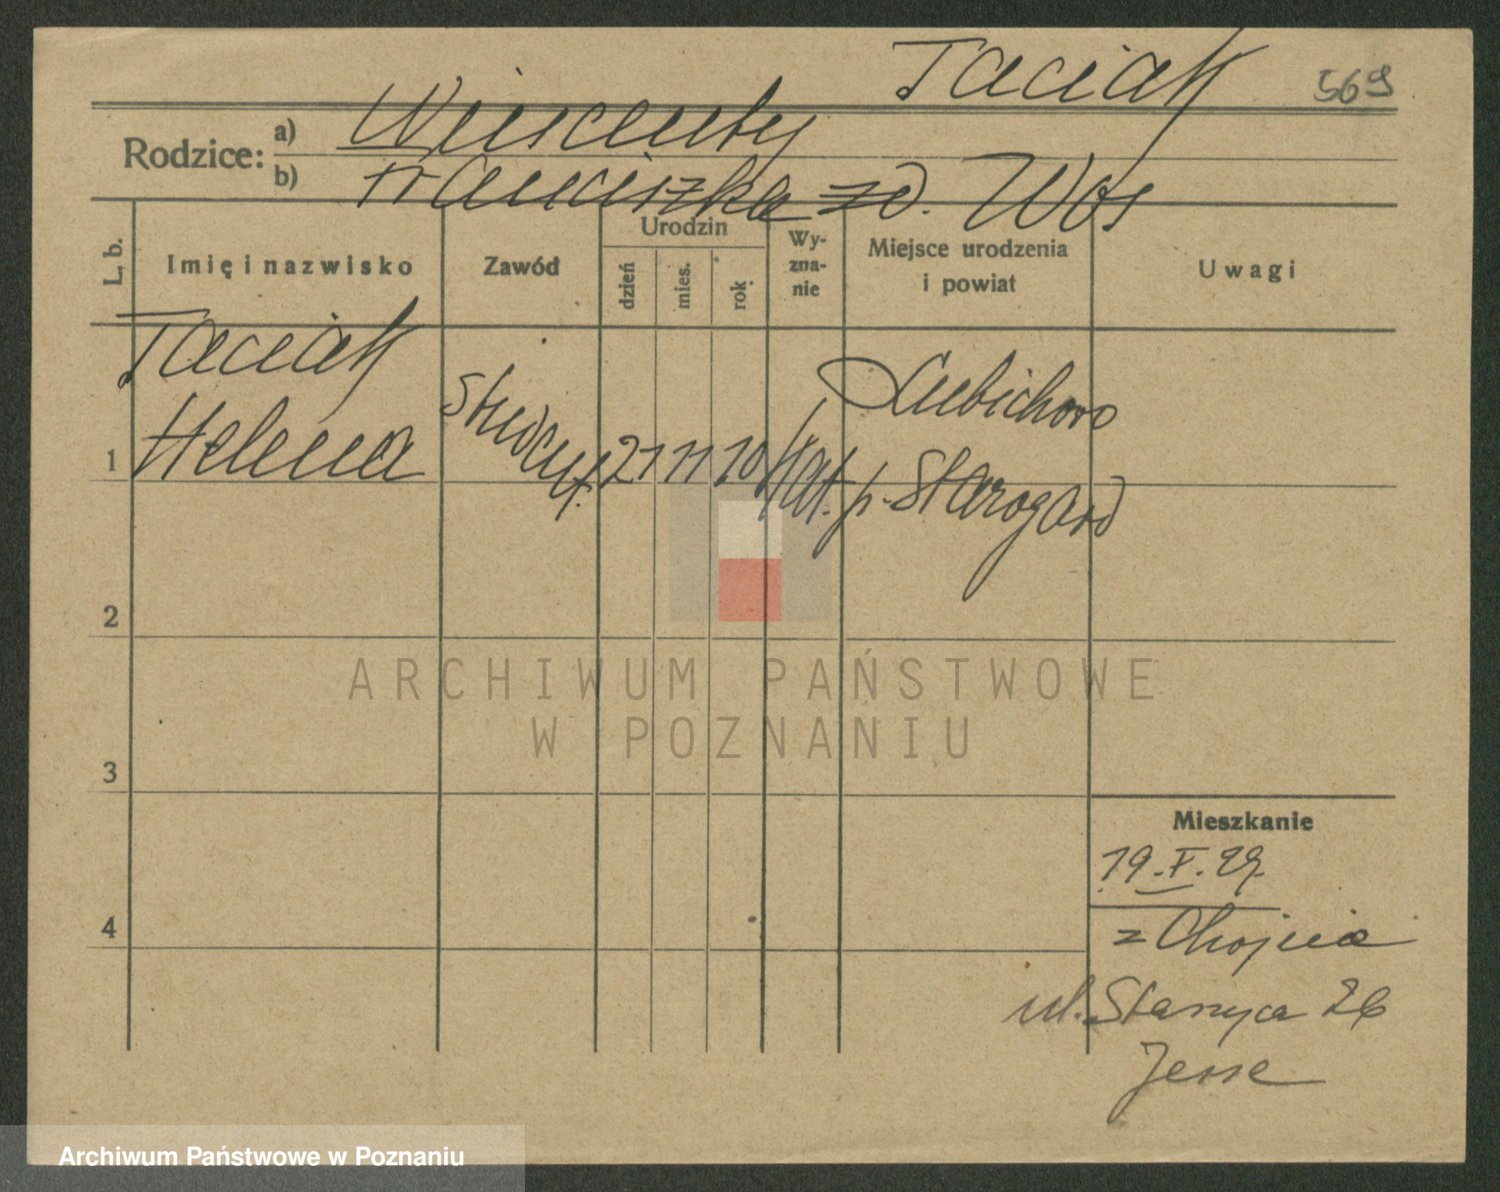 Taciak 569
Rodzice: a) Wincenty
b) Franciszka zd. Woś
L. b.
Imię i nazwisko
Zawód
Urodzin
dzień
mies.
rok
Wy-
zna-
nie
Miejsce urodzenia
i powiat
Uwagi
Taciak
Helena
1
21 11 10
Kat.
Lubichowo
p. Starogard
2
3
4
Mieszkanie
z Chojnic
ul. Staszyca 26
ARCHIWUM PAŃSTWOWE
W POZNANIU
Archiwum Państwowe w Poznaniu